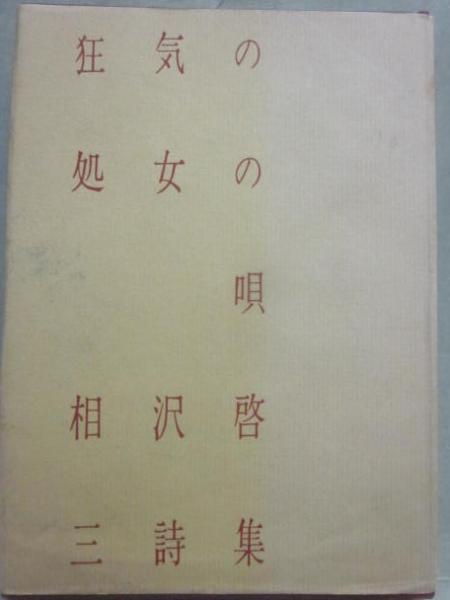 狂気の
処女の
唄
相沢啓
三詩集